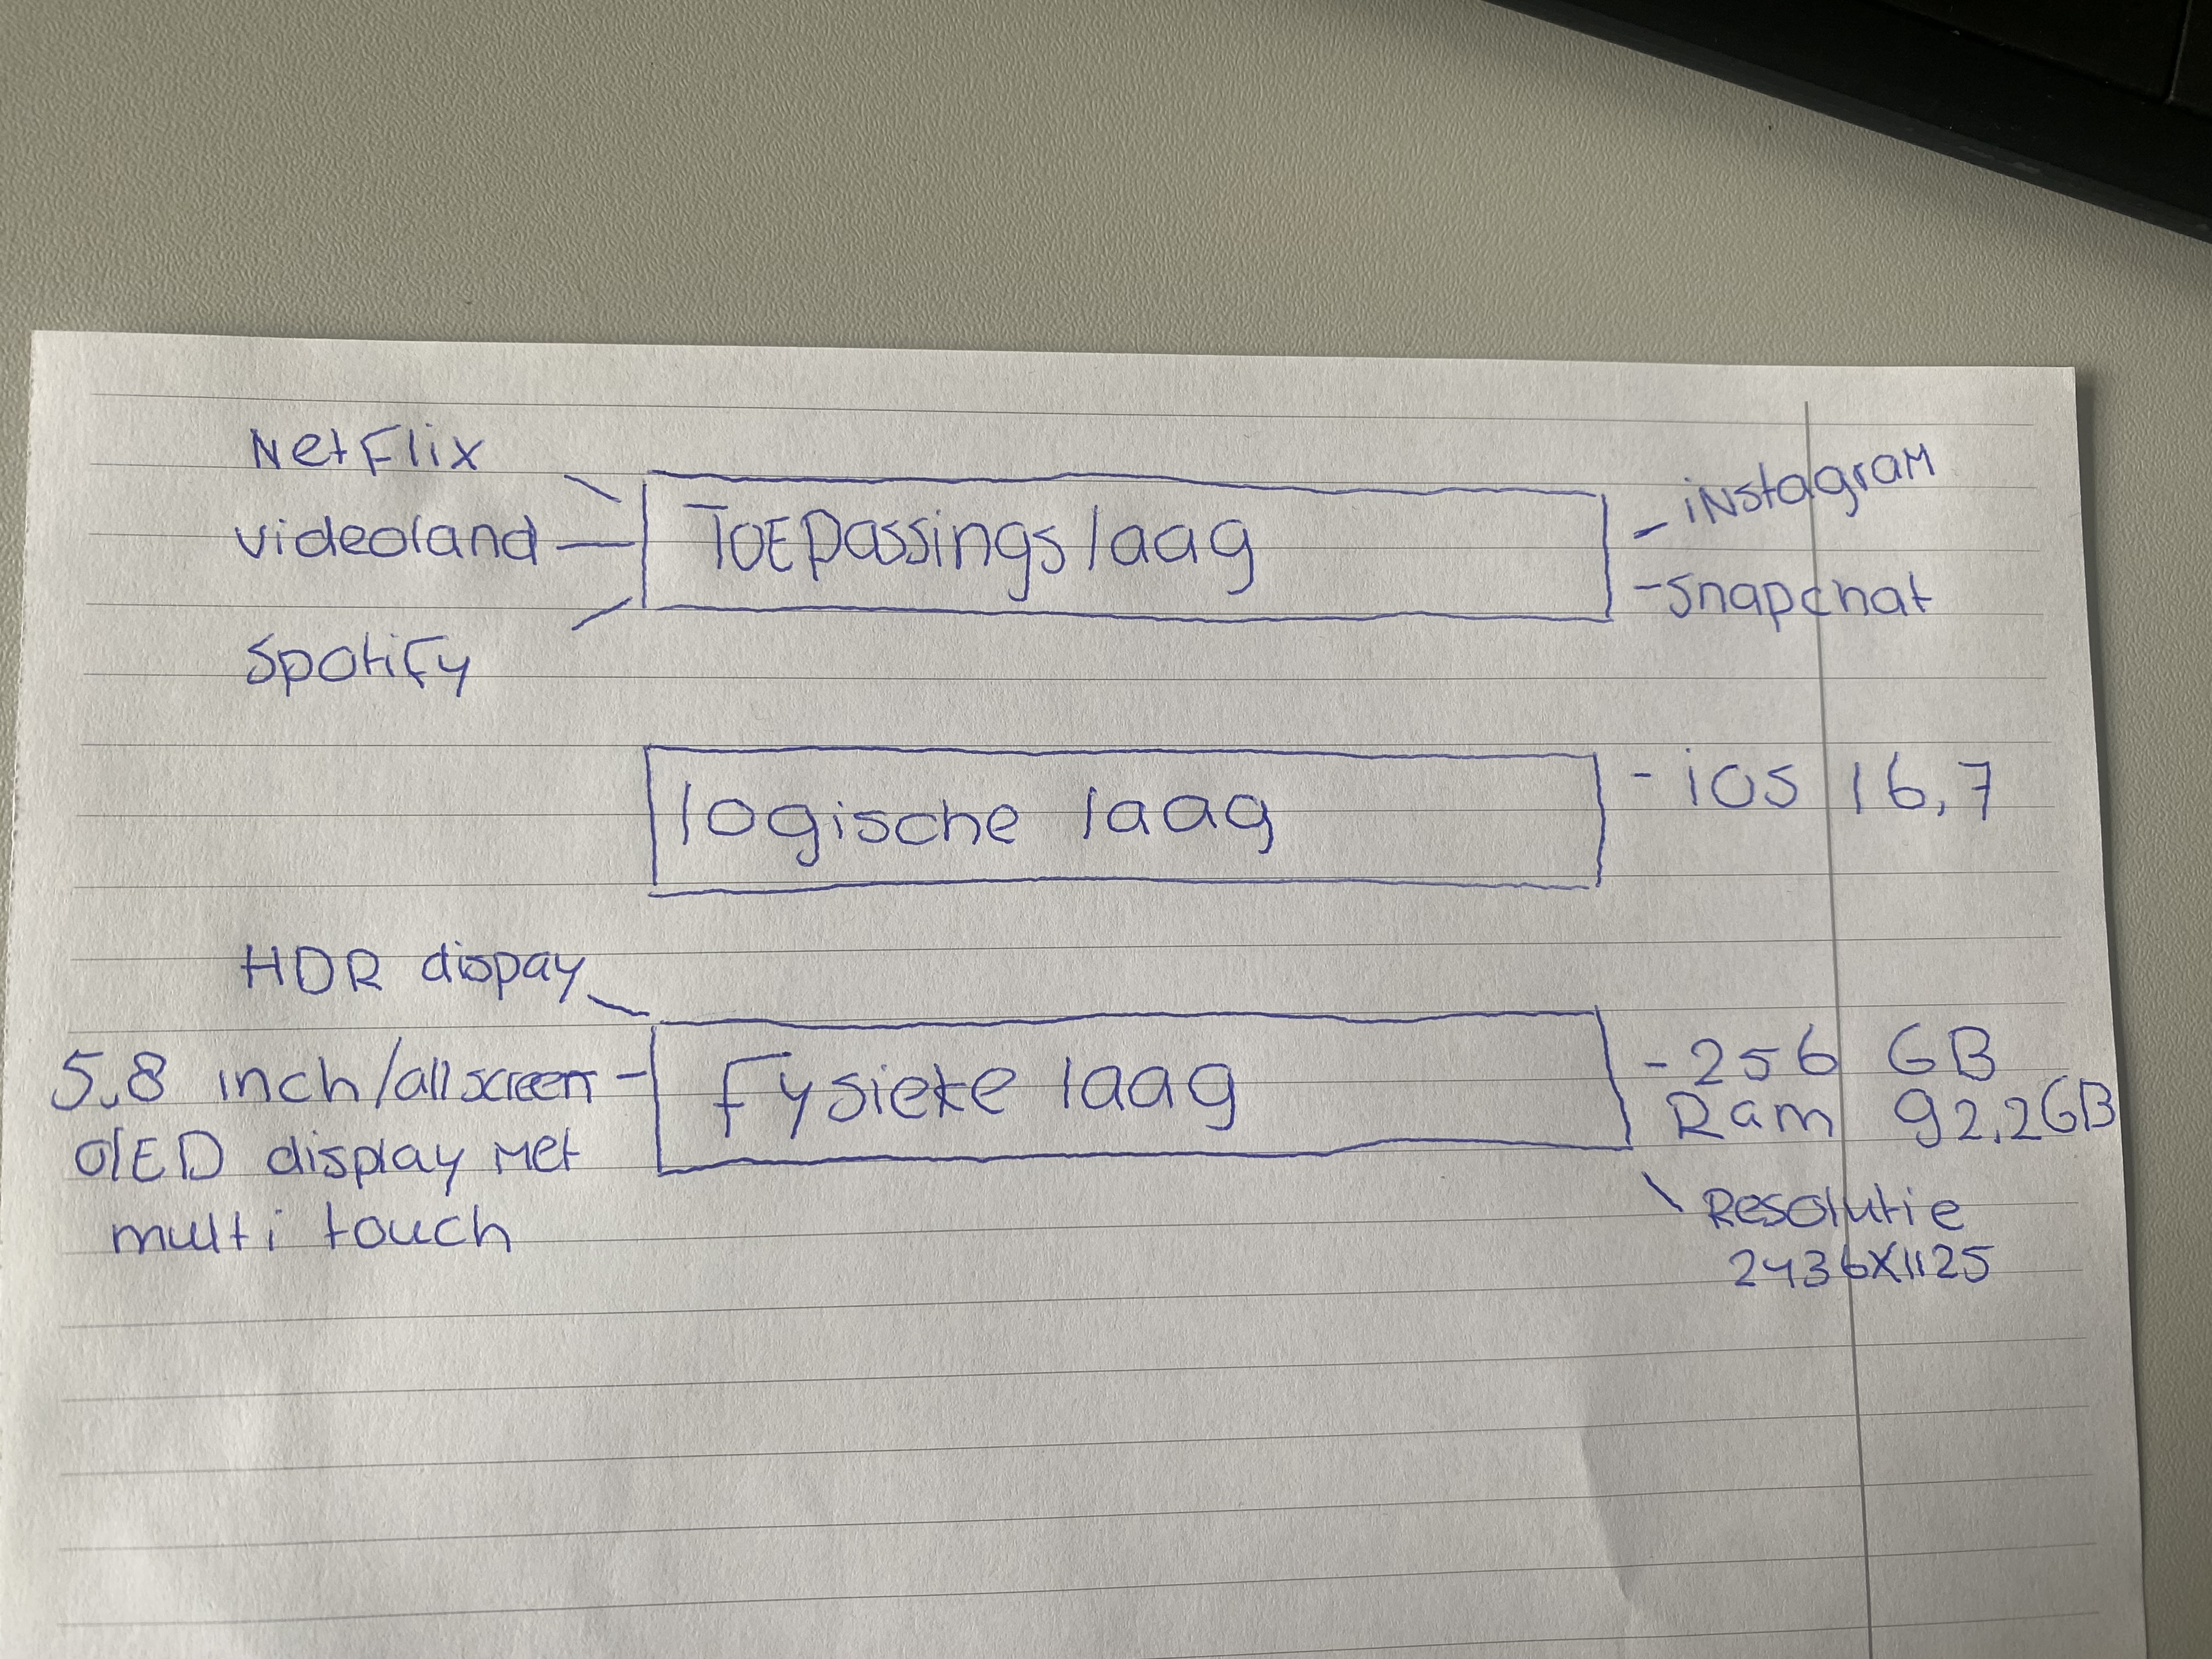 Netflix
videoland
Spotify
Toepassingslaag
- instagram
- Snapchat
logische laag
- iOS 16,7
HDR dispay
5,8 inch/all screen
OLED display met
multi touch
Fysieke laag
- 256 GB
Ram 92,2GB
Resolutie
2436x1125